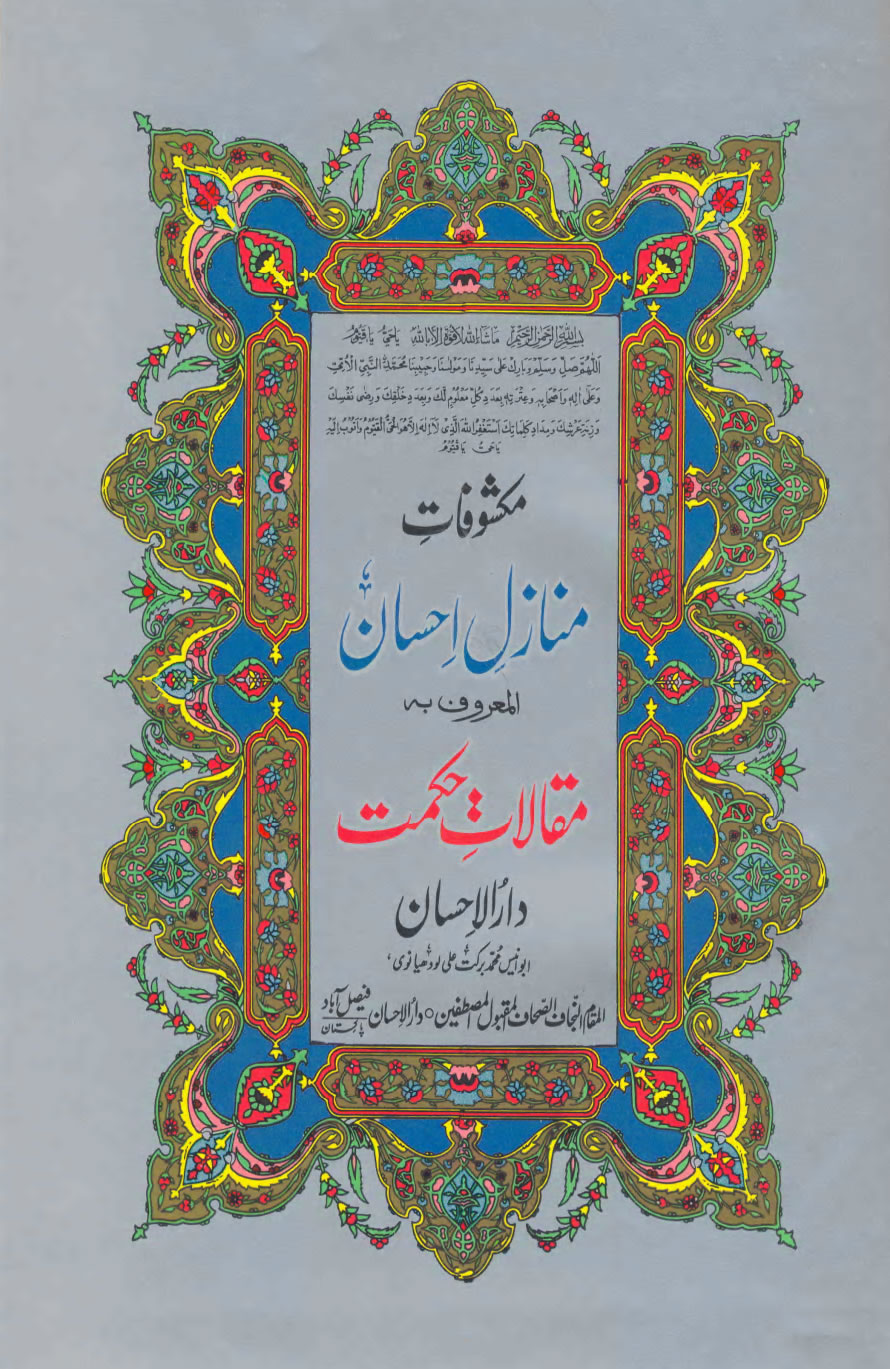 بِسْمِ اللهِ الرَّحْمٰنِ الرَّحِیْمِ مَاشَآءَ اللهُ لَاقُوَّةَ اِلَّا بِاللهِ یَاحَیُّ یَا قَیُّوْمُ
اَللّٰهُمَّ صَلِّ وَسَلِّمْ وَبَارِكْ عَلٰى سَيِّدِنَا وَمَوْلٰىنَا وَحَبِيْبِنَا مُحَمَّدِ ۨ النَّبِيِّ الْاُمِّيِّ
وَعَلٰى اٰلِهٖ وَاَصْحَابِهٖ وَعِتْرَتِهٖ بِعَدَدِ كُلِّ مَعْلُوْمٍ لَّكَ وَبِعَدَدِ خَلْقِكَ وَرِضٰى نَفْسِكَ
وَزِنَةِ عَرْشِكَ وَمِدَادِ كَلِمَاتِكَ اَسْتَغْفِرُ اللهَ الَّذِىْ لَآ اِلٰهَ اِلَّا هُوَ الْحَىُّ الْقَيُّوْمُ وَاَتُوْبُ اِلَيْهِ
یَاحَیُّ یَا قَیُّوْمُ
مکشوفاتِ
منازلِ اِحسان
المعروف بہ
مقالاتِ حکمت
دارُ الاِحسان
ابو انیس محمد برکت علی لودھیانوی
المقام النجاف الصحاف المقبول المصطفین ○ دارُ الاِحسان فیصل آباد پاکستان